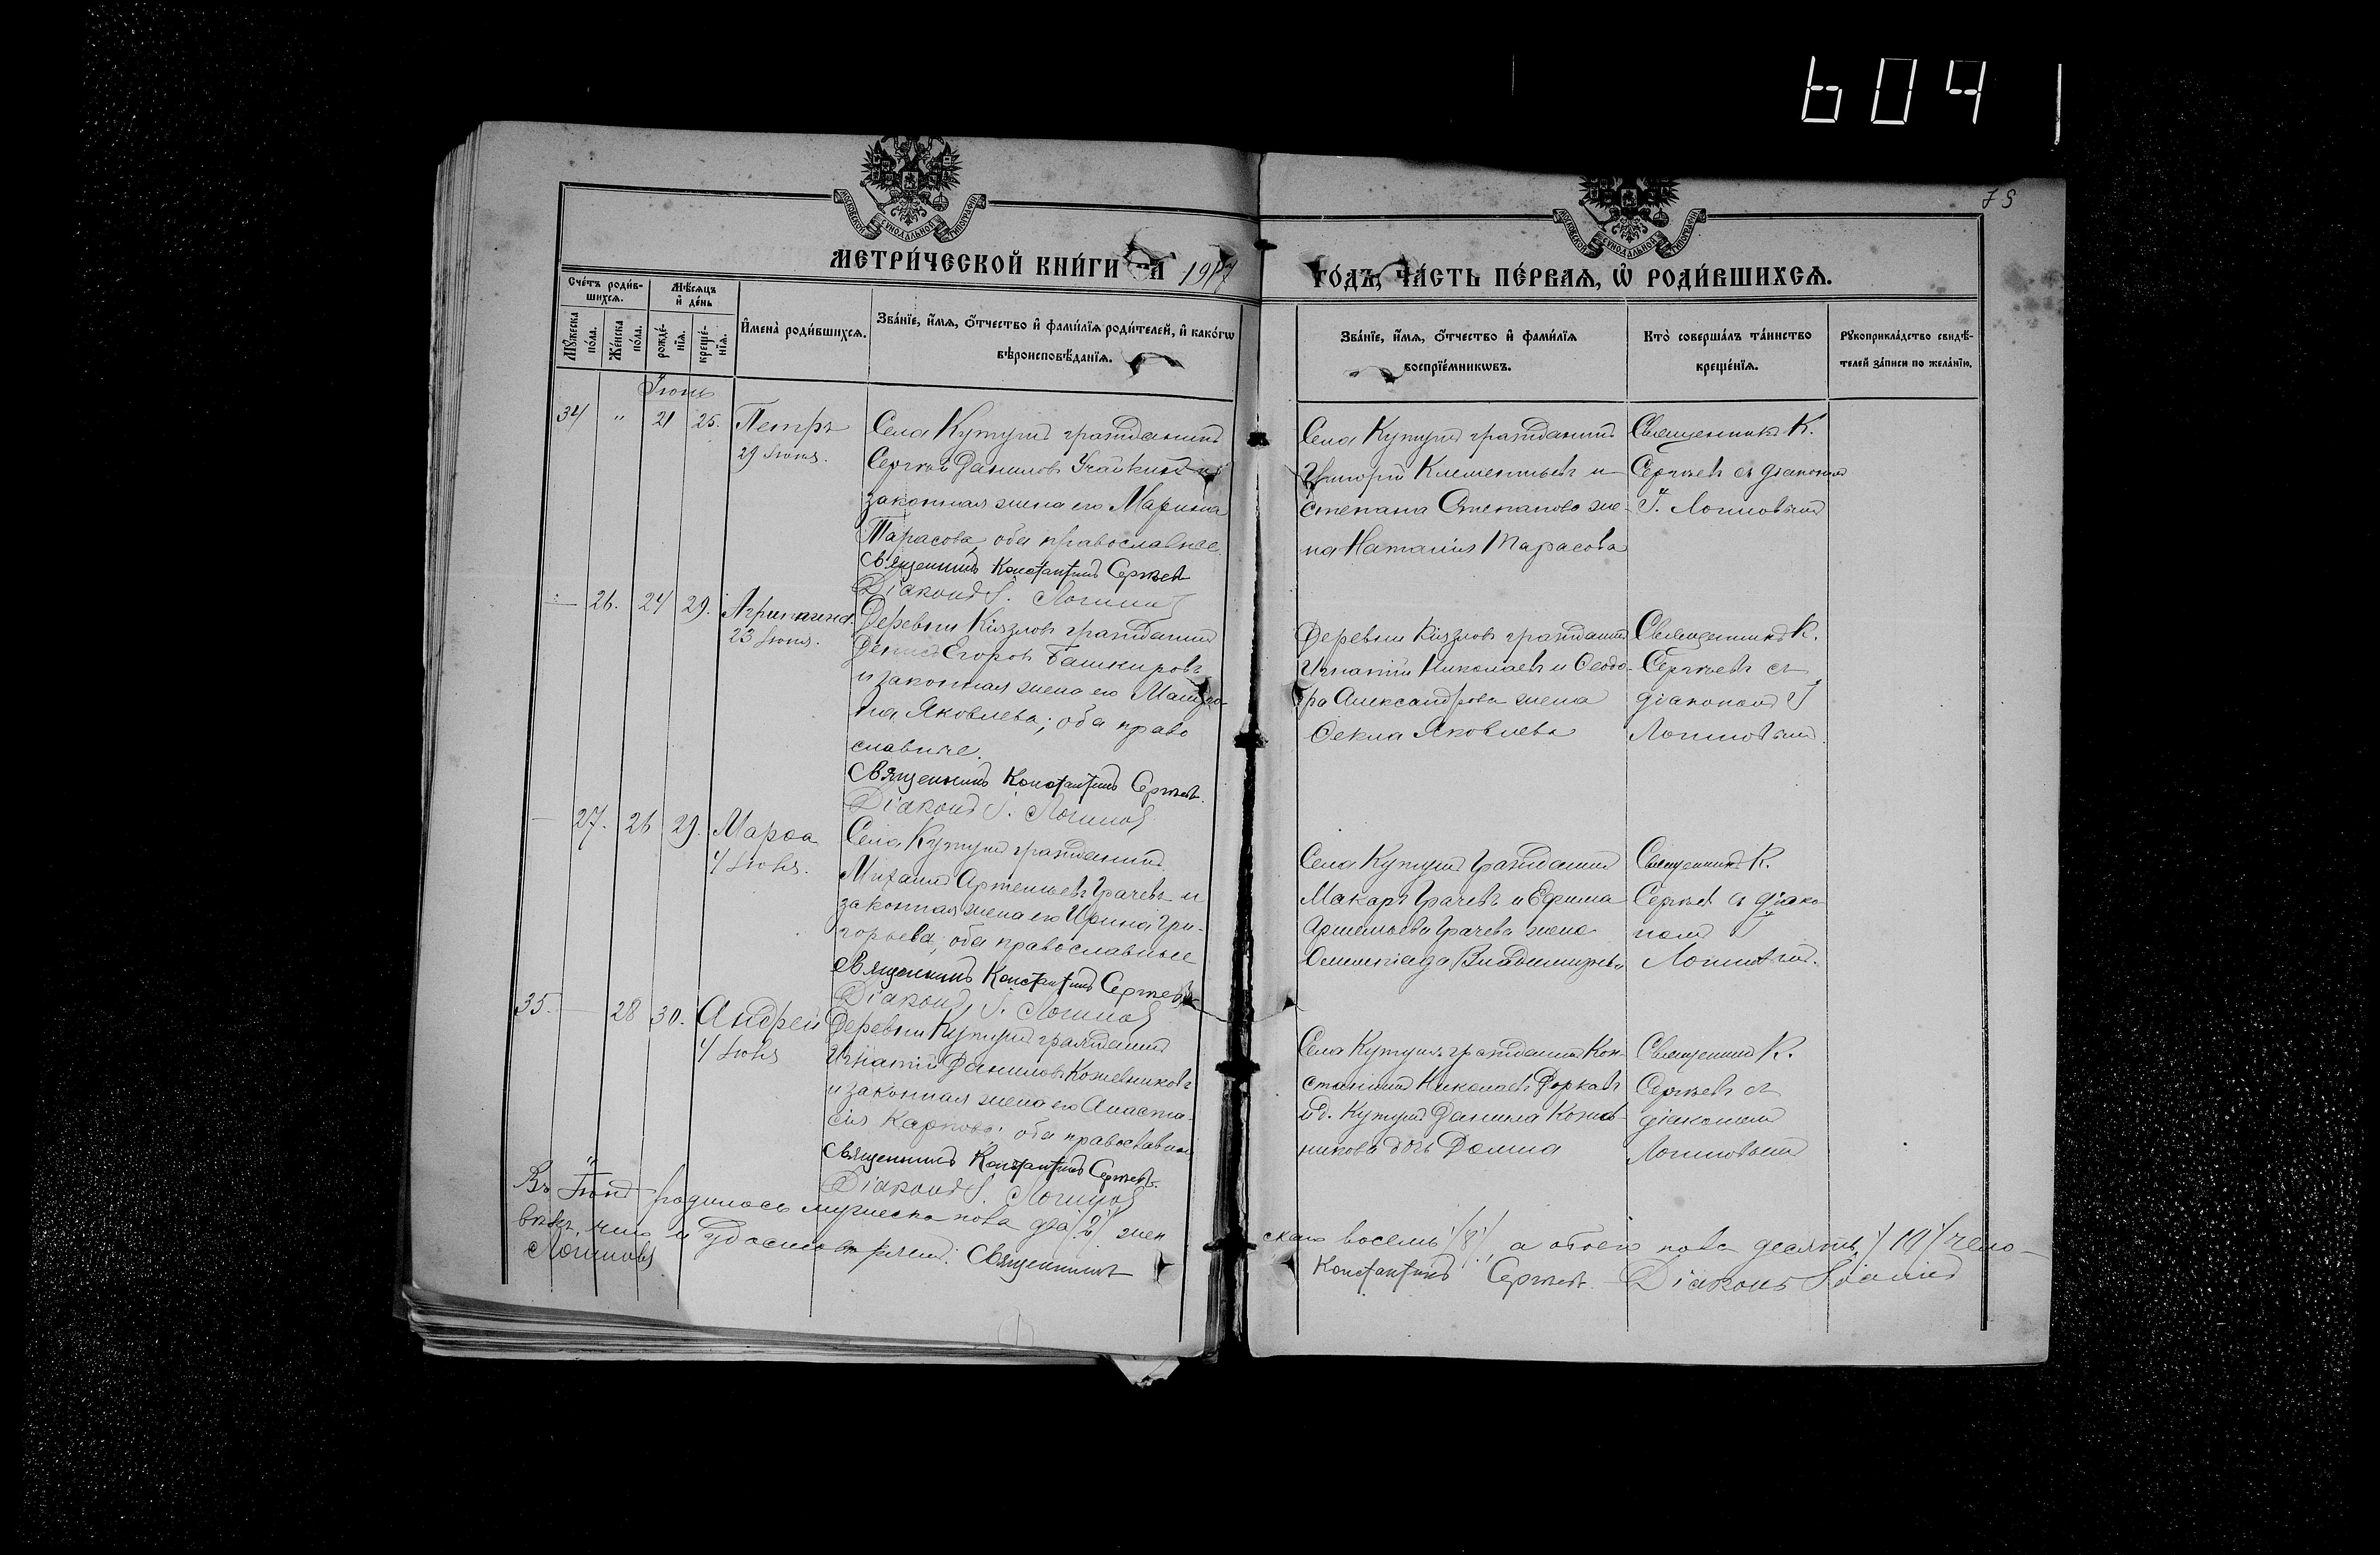 6041
79
МОСКОВСКОЙ СѴНОДАЛЬНОЙ ТИПОГРАФІИ
МОСКОВСКОЙ СѴНОДАЛЬНОЙ ТИПОГРАФІИ
МЕТРИ́ЧЕСКОЙ КНИ́ГИ НА 1917
ГО́ДЪ, ЧА́СТЬ ПЕ́РВАЯ, Ѡ РОДИ́ВШИХСЯ.
Сче́тъ роди́вшихся.
Мѣ́сяцъ и де́нь
Му́жеска по́ла.
Же́нска по́ла.
рожде́нїя.
креще́нїя.
Имена̀ роди́вшихся.
Зва́нїе, и́мя, о́тчество и фами́лїя роди́телей, и како́гѡ
вѣроисповѣ́данїя.
Зва́нїе, и́мя, о́тчество и фами́лїя
воспрїе́мникѡвъ.
Кто̀ соверша́лъ та́инство
креще́нїя.
Рукоприкла́дство свидѣ́телей за́писи по жела́нїю.
Іюнь
34 " 21 25. Петръ
29 Іюня.
Села Кутуш гражданинъ
Сергѣй Даниловъ и
законная жена его Марина
Тарасова, оба православные.
Священникъ Константинъ Сергѣевъ
Діаконъ І. Логиновъ
Села Кутуш гражданинъ
Григорій Клементьевъ и
Степана Степанова же-
на Наталия Тарасова
Священникъ К.
Сергѣевъ съ діакономъ
І. Логиновымъ
— 26. 24 29. Агрипина.
23 Іюня.
Деревни гражданинъ
Денисъ Егоровъ Башкировъ
и законная жена его Матро-
на Яковлева; оба право
славные.
Священникъ Константинъ Сергѣевъ.
Діаконъ І. Логиновъ
Деревни гражданинъ
Игнатій Николаевъ и Ѳеодо-
ра Александрова жена
Ѳекла Яковлева
Священникъ К.
Сергѣевъ съ
діакономъ І
Логиновымъ.
— 27. 26 29. Марѳа
4 Іюля.
Села Кутуш гражданинъ
Михаилъ Артемьевъ Грачевъ и
законная жена его Ирина Гри-
горьева, оба православные
Священникъ Константинъ Сергѣевъ
Діаконъ І. Логиновъ
Села Кутуш гражданинъ
Макаръ Грачевъ и Ефима
Артемьева Грачева жена
Владимирова
Священникъ К.
Сергѣевъ съ діако-
номъ І
Логиновымъ.
35. — 28 30. Андрей
4 Іюля
Деревни Кутуш гражданинъ
Игнатій Даниловъ Кожевниковъ
и законная жена его Анаста-
сія Карпова; оба православные
Священникъ Константинъ Сергѣевъ.
Діаконъ І. Логиновъ
Села Кутуш гражданинъ Кон-
стантинъ Николаевъ
и д. Кутуш Данила Кожев-
никова дочь Домна
Священникъ К.
Сергѣевъ съ
діакономъ
Логиновымъ
Въ Іюнѣ родилось мужеска пола два /2/ жен
скаго восемь /8/, а обоего пола десять /10/ чело-
вѣкъ, чемъ и удостовѣряемъ: Священникъ
Константинъ Сергѣевъ. Діаконъ
Логиновъ